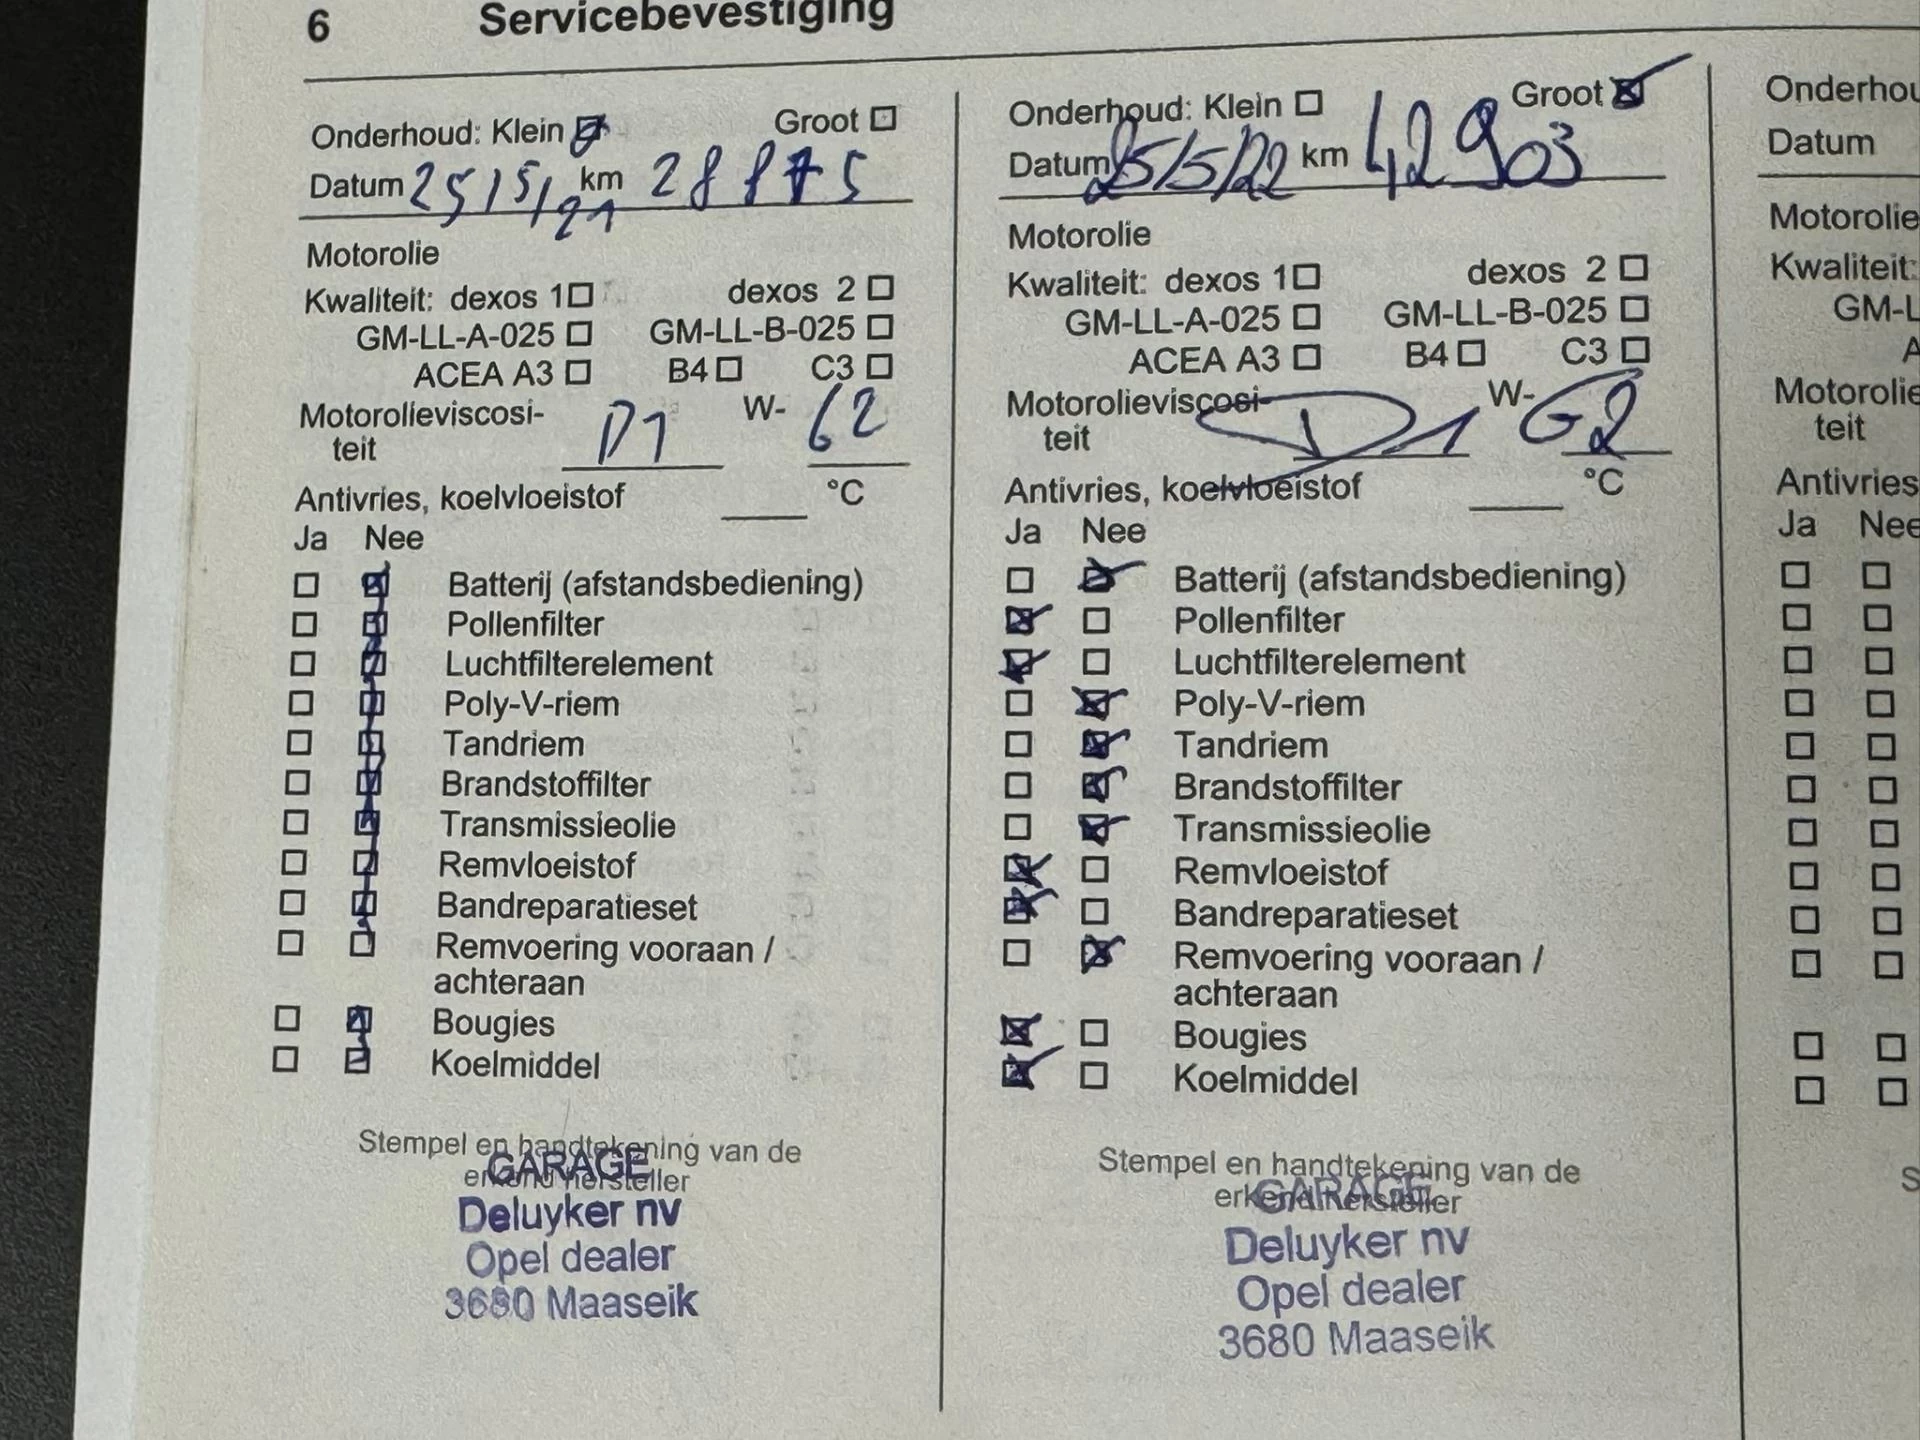 6 Servicebevestiging
Onderhoud: Klein Groot
Datum 25/5/21 km 28875
Motorolie
Kwaliteit: dexos 1 dexos 2
GM-LL-A-025 GM-LL-B-025
ACEA A3 B4 C3
Motorolieviscosi-
teit D1 W- G2
Antivries, koelvloeistof °C
Ja Nee
Batterij (afstandsbediening)
Pollenfilter
Luchtfilterelement
Poly-V-riem
Tandriem
Brandstoffilter
Transmissieolie
Remvloeistof
Bandreparatieset
Remvoering vooraan /
achteraan
Bougies
Koelmiddel
Stempel en handtekening van de
erkend hersteller
GARAGE
Deluyker nv
Opel dealer
3680 Maaseik
Onderhoud: Klein Groot
Datum 25/5/22 km 42903
Motorolie
Kwaliteit: dexos 1 dexos 2
GM-LL-A-025 GM-LL-B-025
ACEA A3 B4 C3
Motorolieviscosi-
teit D1 W- G2
Antivries, koelvloeistof °C
Ja Nee
Batterij (afstandsbediening)
Pollenfilter
Luchtfilterelement
Poly-V-riem
Tandriem
Brandstoffilter
Transmissieolie
Remvloeistof
Bandreparatieset
Remvoering vooraan /
achteraan
Bougies
Koelmiddel
Stempel en handtekening van de
erkend hersteller
GARAGE
Deluyker nv
Opel dealer
3680 Maaseik
Onderhou
Datum
Motorolie
Kwaliteit:
GM-L
A
Motorolie
teit
Antivries
Ja Nee
S